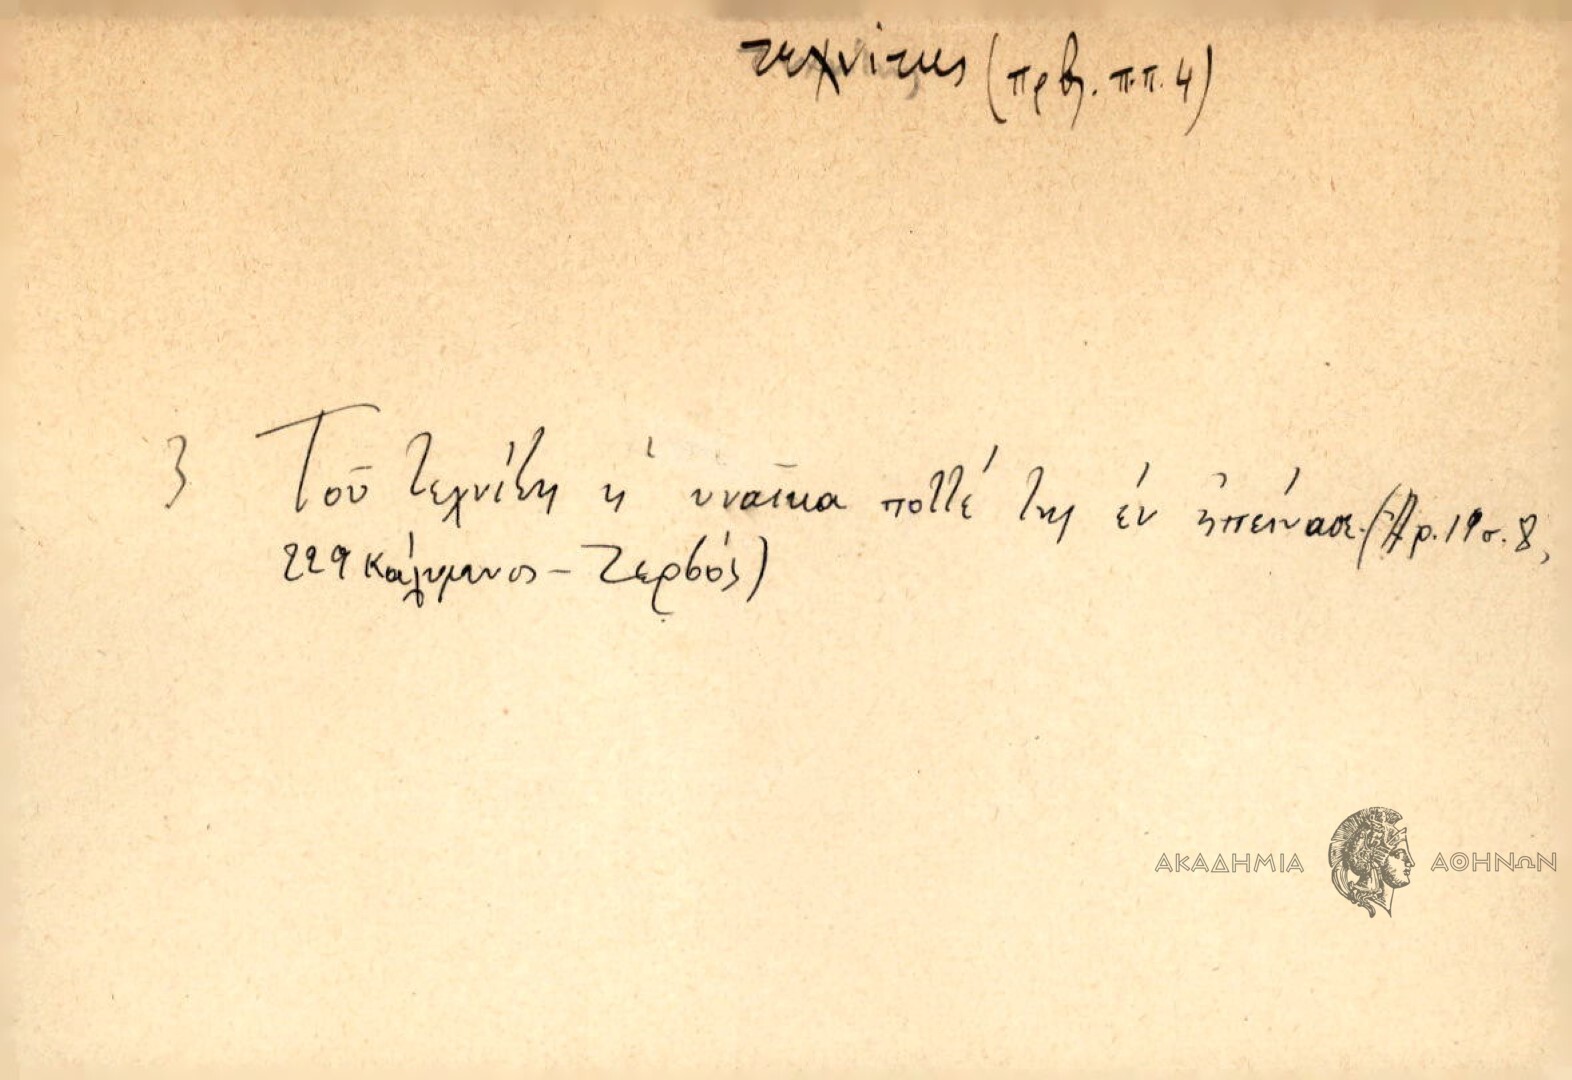 τεχνίτης (πρβ. π.π. 4)
3 Τοῦ τεχνίτη ἡ υναῖκα ποττέ της ἐν ἠπείνασε. (Ἀρ. 19 σ. 8,
229 Κάλυμνος – Ζερβός)
ΑΚΑΔΗΜΙΑ ΑΘΗΝΩΝ